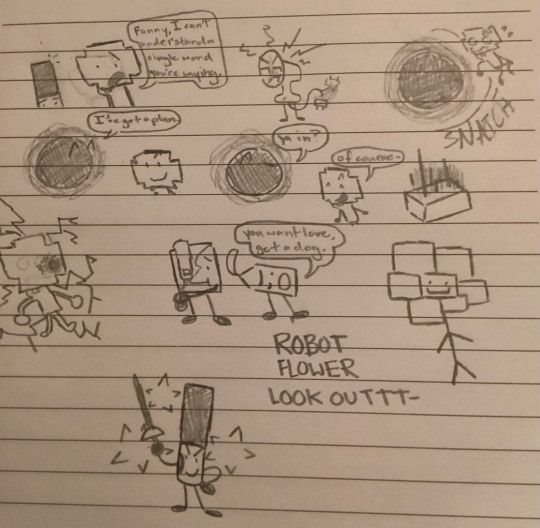 Fanny, I can't
understand a
single word
you're saying.
SNATCH
I've got a plan.
ya in?
of course-
you want love,
get a dog.
ROBOT
FLOWER
LOOK OUTTT-